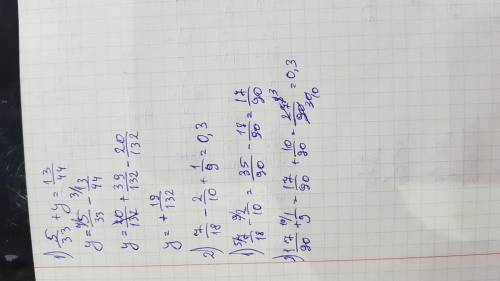 1) 5/33 + y = 13/44
y = 4/5/33 - 3/13/44
y = 20/132 + 39/132 - 20/132
y = + 19/132
2) 7/18 - 2/10 + 1/9 = 0,3
1) 5/7/18 - 9/2/10 = 35/90 - 18/90 = 17/90
2) 17/90 + 10/1/9 = 17/90 + 10/90 = 27/90 = 0,3